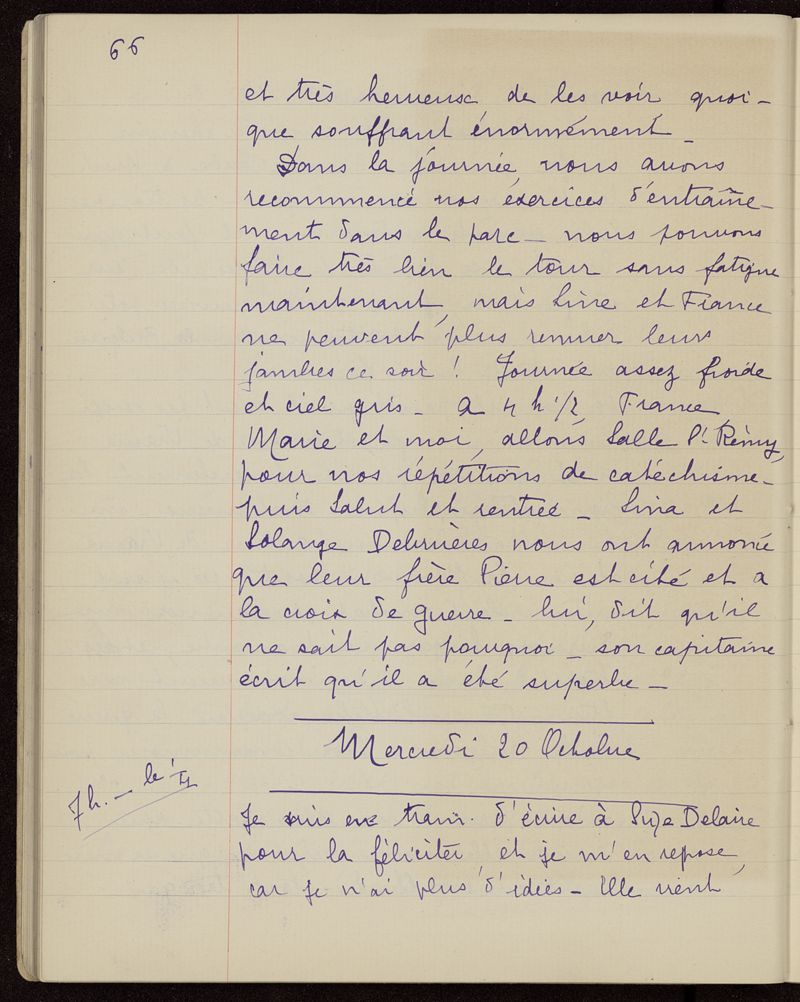 66
et très heureuse de les voir quoi-
que souffrant énormément _
Dans la journée, nous avons
recommencé nos exercices d'entraîne-
ment dans le parc _ nous pouvons
faire très bien le tour sans fatigue
maintenant, mais Line et France
ne peuvent plus remuer leurs
jambes ce soir ! Journée assez froide
et ciel gris _ a 4 h 1/2, France,
Marie et moi, allons Salle St Rémy,
pour nos répétitions de catéchisme _
puis Salut et rentrée _ Lina et
Solange Debruères nous ont annoncé
que leur frère Pierre est cité et a
la croix de guerre _ lui, dit qu'il
ne sait pas pourquoi _ son capitaine
écrit qu'il a été superbe _
Mercredi 20 Octobre
7 h. _
Je suis en train d'écrire à Suze Delaire
pour la féliciter, et je m'en repose,
car je n'ai plus d'idées _ Elle vient